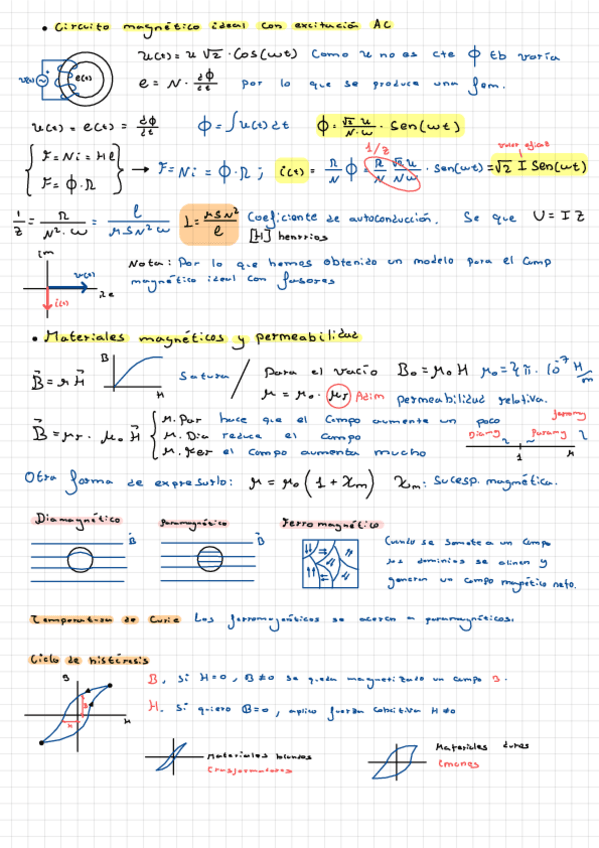 • Circuito magnético ideal con excitación AC
u(t) = u √2 · Cos(ωt) Como u no es cte ϕ tb varía
u(t) e(t) e = N · dϕ/dt por lo que se produce una fem.
u(t) = e(t) = dϕ/dt ϕ = ∫ u(t) dt ϕ = √2 u / N·ω · Sen(ωt)
1/Z
F = Ni = Hl
F = ϕ · R → F = Ni = ϕ · R ; i(t) = R/N ϕ = R/N √2 u/Nω · Sen(ωt) = √2 I Sen(ωt)
1/Z = R / N²·ω = l / μSN²ω L = μSN²/l Coeficiente de autoconducción. Se que U = I Z
[H] henrrios
im
u(t)
i(t)
Re
Nota: Por lo que hemos obtenido un modelo para el camp
magnético ideal con fasores
• Materiales magnéticos y permeabilidad
B⃗ = μ H⃗ B H Satura / Para el vacío B₀ = μ₀ H μ₀ = 4π · 10⁻⁷ H/m
μ = μ₀ · μr Adim permeabilidad relativa.
B⃗ = μr · μ₀ H⃗
M. Par hace que el campo aumente un poco
M. Dia reduce el campo
M. Fer el campo aumenta mucho
Diamg Paramg 1 μ
Otra forma de expresarlo: μ = μ₀ (1 + χm) χm: Sucesp. magnética.
Diamagnético Paramagnético Ferromagnético
B⃗ B⃗
Cuando se somete a un campo
los dominios se alinen y
generan un campo magnético neto.
Temperatura de Curie Los ferromagnéticos se acercn a paramagnéticos.
Ciclo de histéresis
B H
B, Si H=0, B≠0 se queda magnetizado un campo B.
H. Si quiero B=0, aplico fuerza cohercitiva H≠0
Materiales blandos
Transformadores
Materiales duros
Imanes